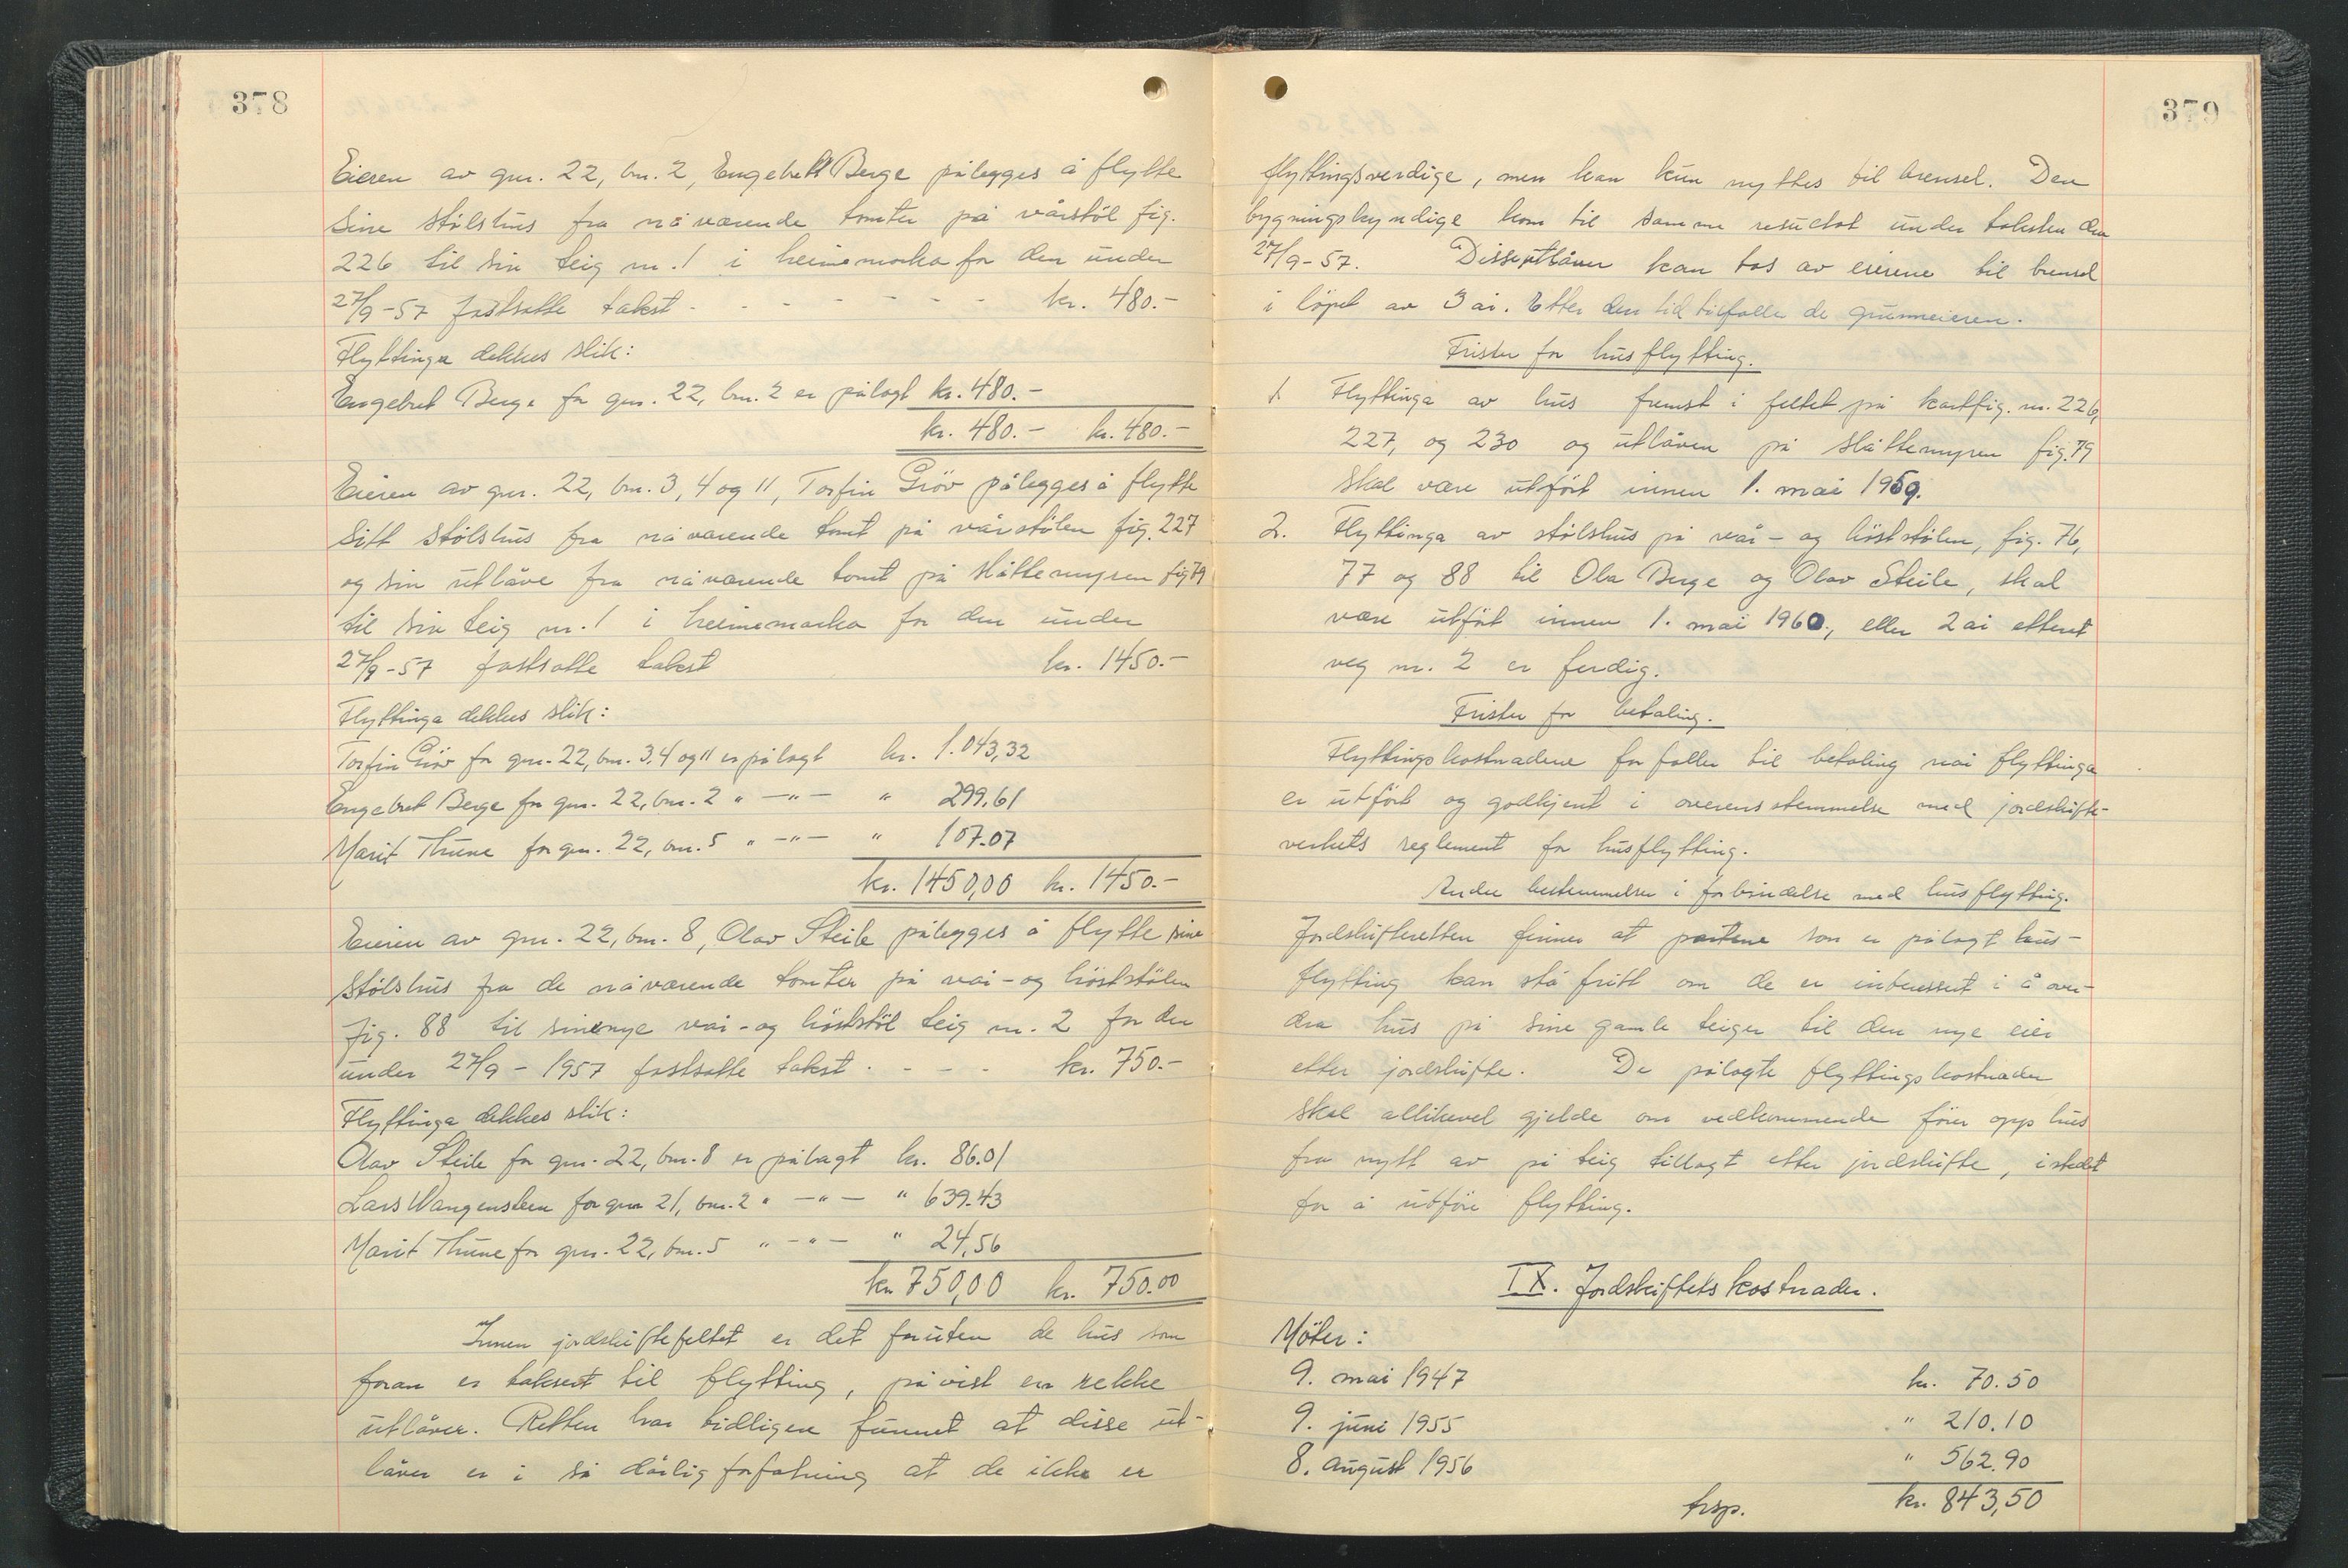 378
Eieren av gnr. 22, bnr. 2, Engebrett Berge pålegges å flytte
sine stölshus fra nåværende tomter på vårstöl fig.
226 til sin teig nr. 1 i heimemarka for den under
27/9-57 fastsatte takst - - - - - - - - kr. 480.-
Flyttinga dekkes slik:
Engebret Berge for gnr. 22, bnr. 2 er pålagt kr. 480.-
kr. 480.- kr. 480.-
Eieren av gnr. 22, bnr. 3, 4 og 11, Torfin Gröv pålegges å flytte
sitt stölshus fra nåværende tomt på vårstölen fig. 227
og sin utlåve fra nåværende tomt på slåttemyren fig 79
til sin teig nr. 1 i heimemarka for den under
27/9-57 fastsatte takst kr. 1450.-
Flyttinga dekkes slik:
Torfin Gröv for gnr. 22, bnr. 3,4 og 11 er pålagt kr. 1.043,32
Engebret Berge for gnr. 22, bnr. 2 " —"— " 299,61
Marit Thune for gnr. 22, bnr. 5 " —"— " 107.07
kr. 1450,00 kr. 1450.-
Eieren av gnr. 22, bnr. 8, Olav Steile pålegges å flytte sine
stölshus fra de nåværende tomter på vår- og höststölen
fig. 88 til sine nye vår- og höststöl teig nr. 2 for den
under 27/9 - 1957 fastsatte takst . - - - kr. 750.-
Flyttinga dekkes slik:
Olav Steile for gnr. 22, bnr. 8 er pålagt kr. 86.01
Lars Wangensteen for gnr 21, bnr. 2 " —"— " 639.43
Marit Thune for gnr. 22, bnr. 5 " —"— " 24,56
kr. 750,00 kr. 750.00
Innen jordskiftefeltet er det foruten de hus som
foran er taksert til flytting, påvist en rekke
utlåver. Retten har tidligere funnet at disse ut-
låver er i så dårlig forfatning at de ikke er
379
flyttingsverdige, men kan kun nyttes til brensel. Den
bygningskyndige kom til samme resultat under taksten den
27/9-57. Disse utlåver kan tas av eierene til brensel
i löpet av 3 år. Etter den tid tilfalle de grunneieren.
Frister for husflytting.
1. Flyttinga av hus fremst i feltet på kartfig. nr. 226,
227, og 230 og utlåven på slåttemyren fig. 79
skal være utfört innen 1. mai 1959.
2. Flyttinga av stölshus på vår- og höststölen, fig. 76,
77 og 88 til Ola Berge og Olav Steile, skal
være utfört innen 1. mai 1960., eller 2 år etteret
veg nr. 2 er ferdig.
Frister for betaling.
Flyttingskostnadene forfaller til betaling når flyttinga
er utfört og godkjent i overensstemmelse med jordskifte-
verkets reglement for husflytting.
Andre bestemmelser i forbindelse med husflytting.
Jordskifteretten finner at partene som er pålagt hus-
flytting kan stå fritt om de er interessert i å over-
dra hus på sine gamle teiger til den nye eier
etter jordskifte. De pålagte flyttingskostnader
skal allikevel gjelde om vedkommende förer opp hus
fra nytt av på teig tillagt etter jordskifte, istedet
for å utföre flytting.
IX. Jordskiftets kostnader.
Möter:
9. mai 1947 kr. 70.50
9. juni 1955 " 210.10
8. august 1956 " 562.90
trsp. kr. 843,50